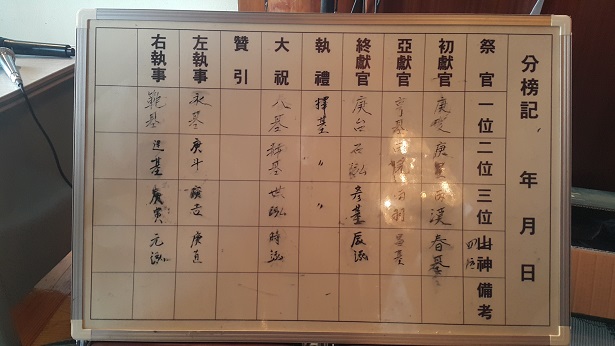 分榜記 年 月 日
祭官 一位 二位 三位 山神 四位 備考
初獻官 春基
亞獻官 亨基 昌基
終獻官 庚台 石泓 彦基 辰泓
執禮 擇基 〃 〃
大祝 八基 世泓 時泓
贊引
左執事 永基 庚斗 庚吉 庚直
右執事 範基 進基 庚寅 元泓